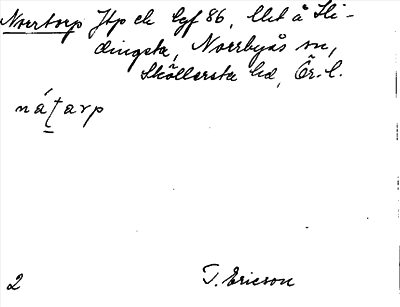 Norrtorp Jtp ch lgf 86, Ullt å Ski-
dingsta, Norrbyås sn,
Sköllersta hd, Ör. l.
náʈarp
2 T. Ericson